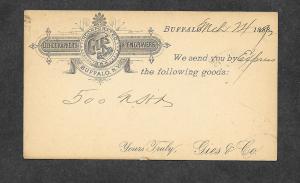 BUFFALO, Mch 24 188
We send you by Express
the following goods:
LITHOGRAPHERS & ENGRAVERS
BUFFALO, N.Y.
500
Yours Truly, Gies & Co.